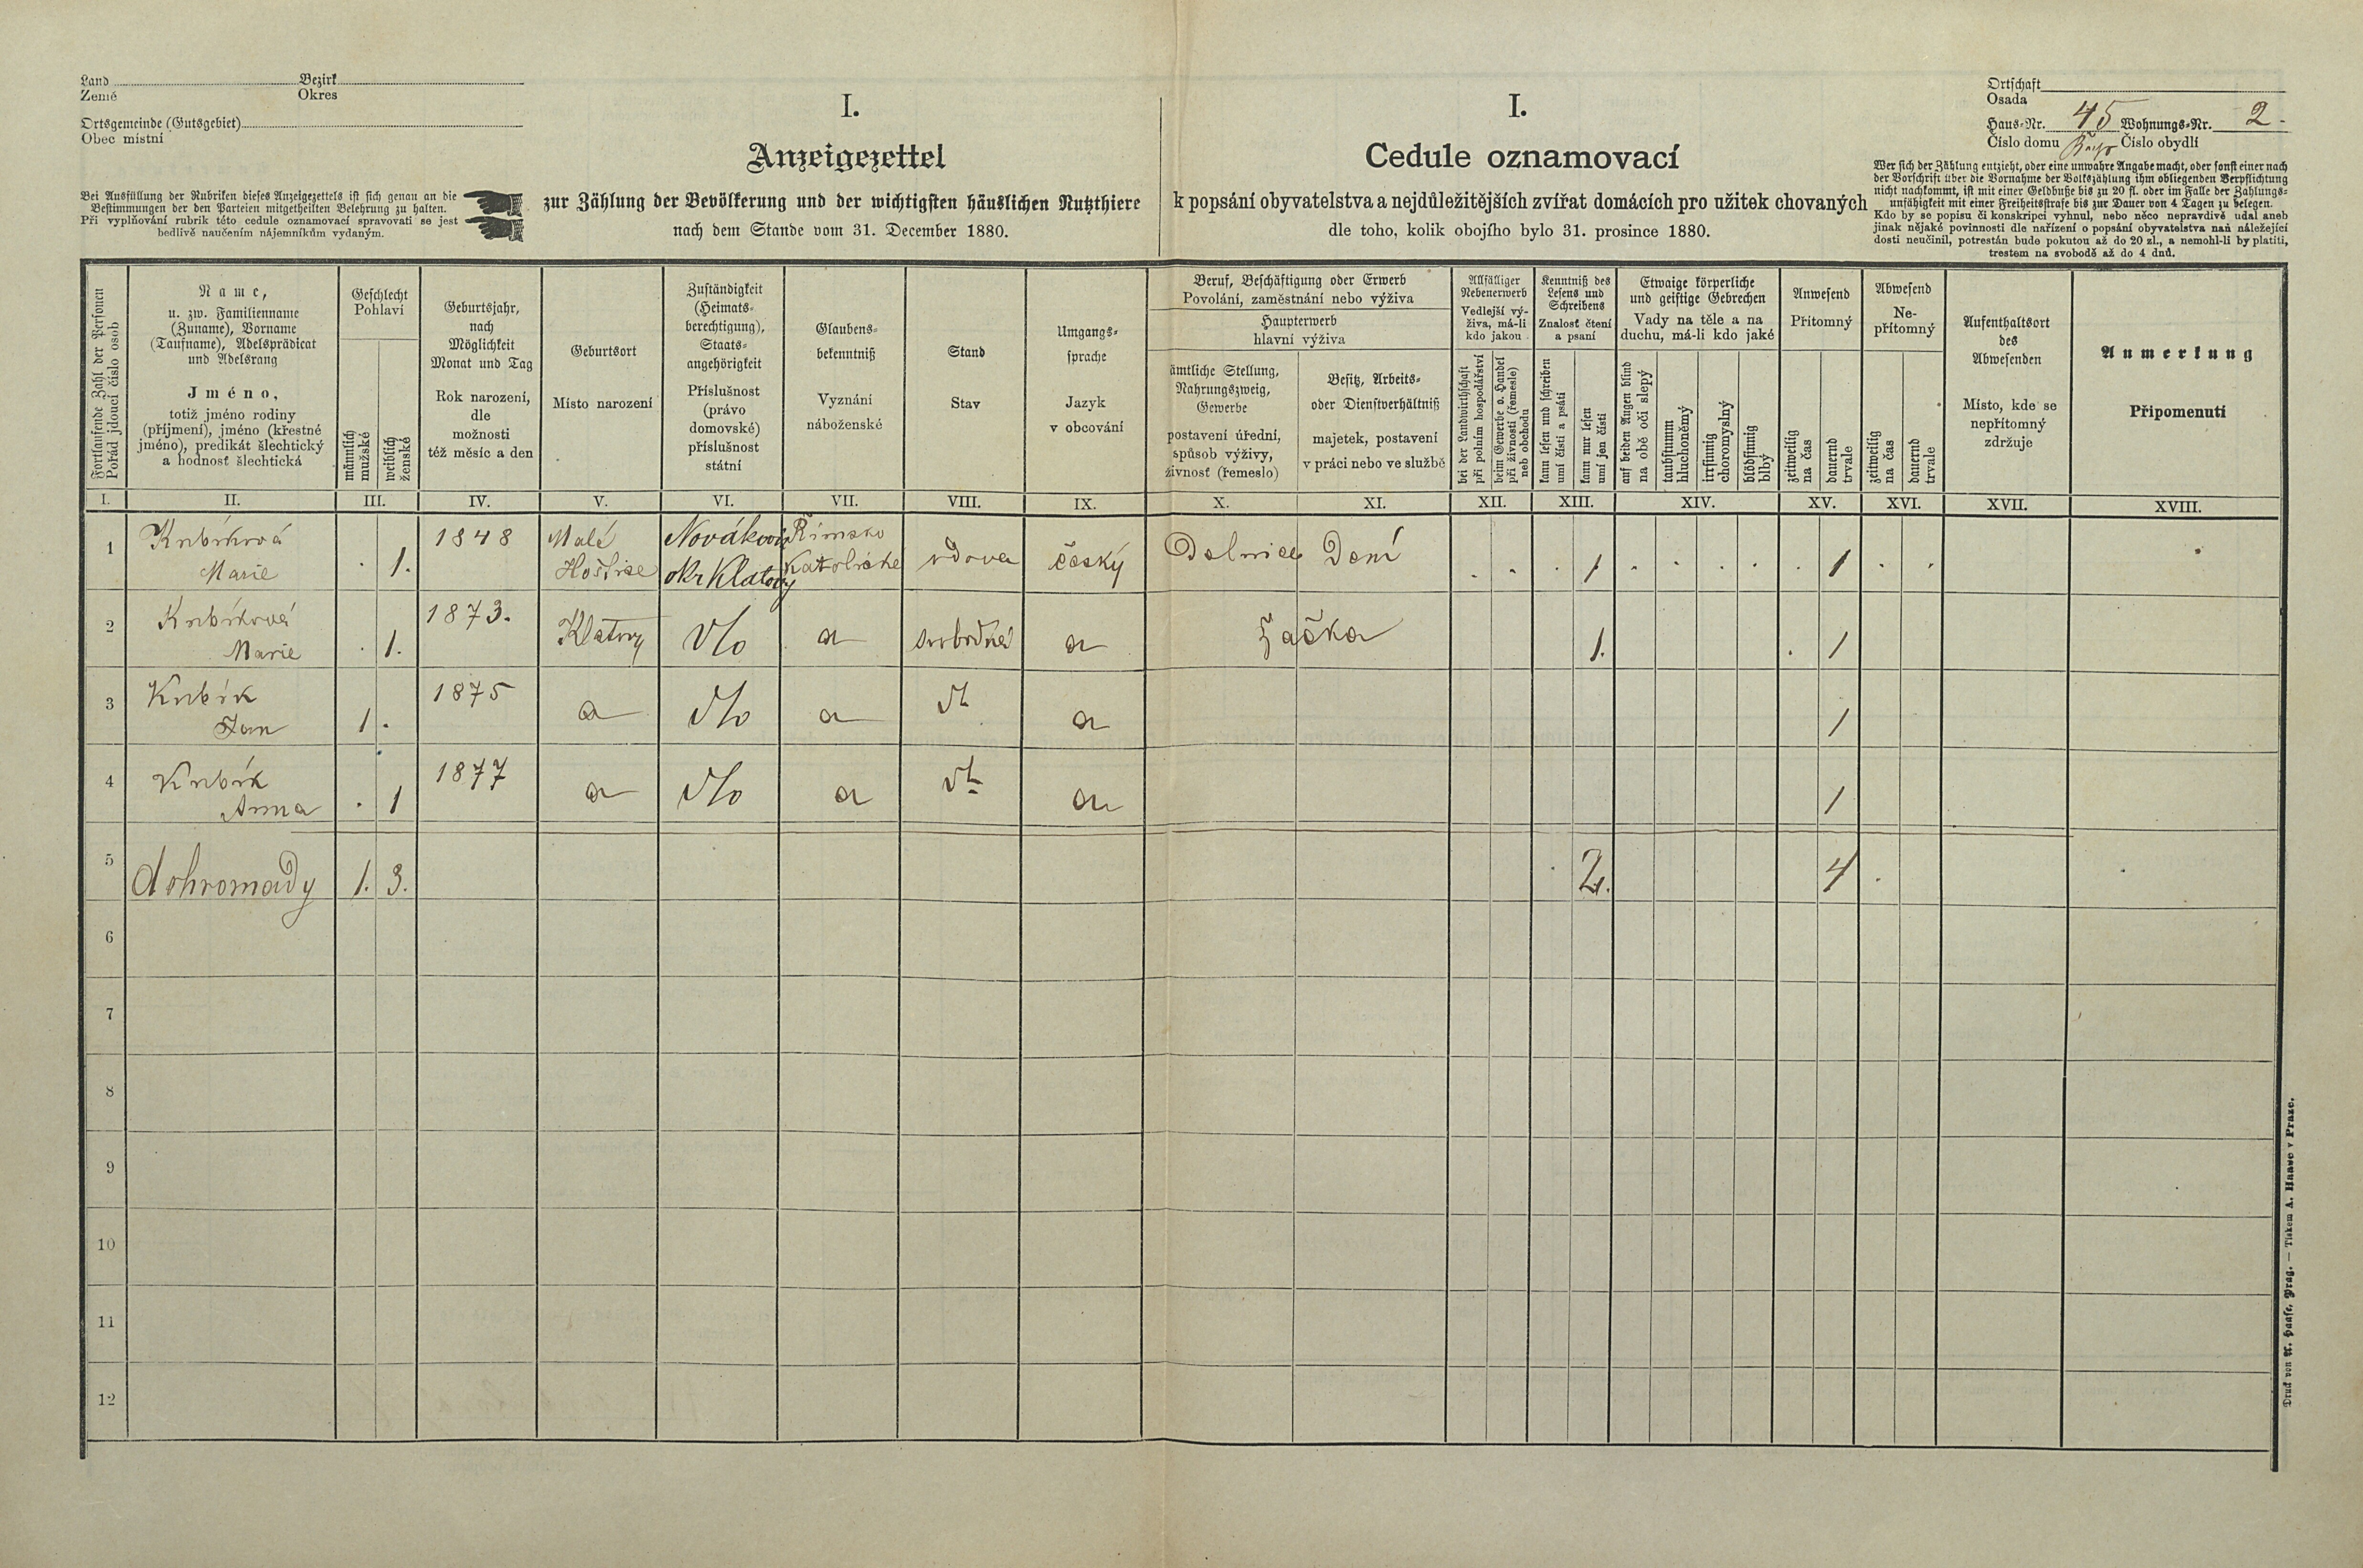 Land Bezirk
Země Okres
Ortsgemeinde (Gutsgebiet)
Obec místní
Bei Ausfüllung der Rubriken dieses Anzeigezettels ist sich genau an die
Bestimmungen der den Parteien mitgetheilten Belehrung zu halten.
Při vyplňování rubrik této cedule oznamovací spravovati se jest
bedlivě naučením nájemníkům vydaným.
I.
Anzeigezettel
zur Zählung der Bevölkerung und der wichtigsten häuslichen Nutzthiere
nach dem Stande vom 31. December 1880.
I.
Cedule oznamovací
k popsání obyvatelstva a nejdůležitějších zvířat domácích pro užitek chovaných
dle toho, kolik obojího bylo 31. prosince 1880.
Ortschaft
Osada
Haus-Nr. 45 Wohnungs-Nr. 2.
Číslo domu Číslo obydlí
Wer sich der Zählung entzieht, oder eine unwahre Angabe macht, oder sonst einer nach
der Vorschrift über die Vornahme der Volkszählung ihm obliegenden Verpflichtung
nicht nachkommt, ist mit einer Geldbuße bis zu 20 fl. oder im Falle der Zahlungs-
unfähigkeit mit einer Freiheitsstrafe bis zur Dauer von 4 Tagen zu belegen.
Kdo by se popisu či konskripci vyhnul, nebo něco nepravdivě udal aneb
jinak nějaké povinnosti dle nařízení o popsání obyvatelstva naň náležející
dosti neučinil, potrestán bude pokutou až do 20 zl., a nemohl-li by platiti,
trestem na svobodě až do 4 dnů.
Fortlaufende Zahl der Personen
Pořád jdoucí číslo osob
Name,
u. zw. Familienname
(Zuname), Vorname
(Taufname), Adelsprädicat
und Adelsrang
Jméno,
totiž jméno rodiny
(příjmení), jméno (křestné
jméno), predikát šlechtický
a hodnosť šlechtická
Geschlecht
Pohlaví
männlich
mužské
weiblich
ženské
Geburtsjahr,
nach
Möglichkeit
Monat und Tag
Rok narození,
dle
možnosti
též měsíc a den
Geburtsort
Místo narození
Zuständigkeit
(Heimats-
berechtigung),
Staats-
angehörigkeit
Příslušnost
(právo
domovské)
příslušnost
státní
Glaubens-
bekenntniß
Vyznání
náboženské
Stand
Stav
Umgangs-
sprache
Jazyk
v obcování
Beruf, Beschäftigung oder Erwerb
Povolání, zaměstnání nebo výživa
Haupterwerb
hlavní výživa
ämtliche Stellung,
Nahrungszweig,
Gewerbe
postavení úřední,
spůsob výživy,
živnosť (řemeslo)
Besitz, Arbeits-
oder Dienstverhältniß
majetek, postavení
v práci nebo ve službě
Allfälliger
Nebenerwerb
Vedlejší vý-
živa, má-li
kdo jakou
bei der Landwirthschaft
při polním hospodářství
beim Gewerbe o. Handel
při živnosti (řemesle)
neb obchodu
Kenntniß des
Lesens und
Schreibens
Znalosť čtení
a psaní
kann lesen und schreiben
umí čísti a psáti
kann nur lesen
umí jen čísti
Etwaige körperliche
und geistige Gebrechen
Vady na těle a na
duchu, má-li kdo jaké
auf beiden Augen blind
na obě oči slepý
taubstumm
hluchoněmý
irrsinnig
choromyslný
blödsinnig
blbý
Anwesend
Přítomný
zeitweilig
na čas
dauernd
trvale
Abwesend
Ne-
přítomný
zeitweilig
na čas
dauernd
trvale
Aufenthaltsort
des
Abwesenden
Místo, kde se
nepřítomný
zdržuje
Anmerkung
Připomenutí
I. II. III. IV. V. VI. VII. VIII. IX. X. XI. XII. XIII. XIV. XV. XVI. XVII. XVIII.
1 Kubíková 1848 Malé Novákovi Římsko
Marie 1. Hoštice okr Klatovy Katolické vdova český Dělnice Dení 1 1
2 Kubíková 1873.
Marie 1. Klatovy a svobodná a žačka 1. 1
3 Kubík 1875
Jan 1. a a a 1
4 Kubík 1877
Anna 1 a a a 1
5 dohromady 1. 3. 2. 4
6
7
8
9
10
11
12
Druck von A. Haase, Prag. — Tiskem A. Haase v Praze.